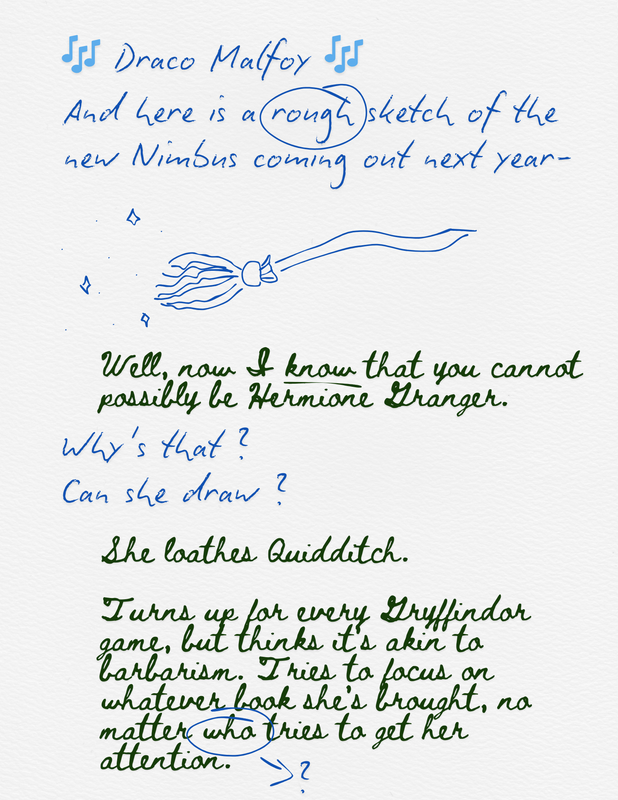 🎶 Draco Malfoy 🎶
And here is a rough sketch of the
new Nimbus coming out next year-
Well, now I know that you cannot
possibly be Hermione Granger.
Why's that?
Can she draw?
She loathes Quidditch.
Turns up for every Gryffindor
game, but thinks it's akin to
barbarism. Tries to focus on
whatever book she's brought, no
matter who tries to get her
attention.
?